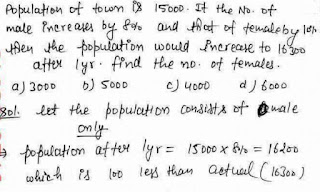 Population of town is 15000. If the No. of
male increases by 8% and that of female by 10%
then the population would increase to 16300
after 1yr. find the no. of females.
a) 3000 b) 5000 c) 4000 d) 6000
Sol. let the population consists of male
only
→ population after 1yr = 15000 x 8% = 16200
which is 100 less than actual (16300)